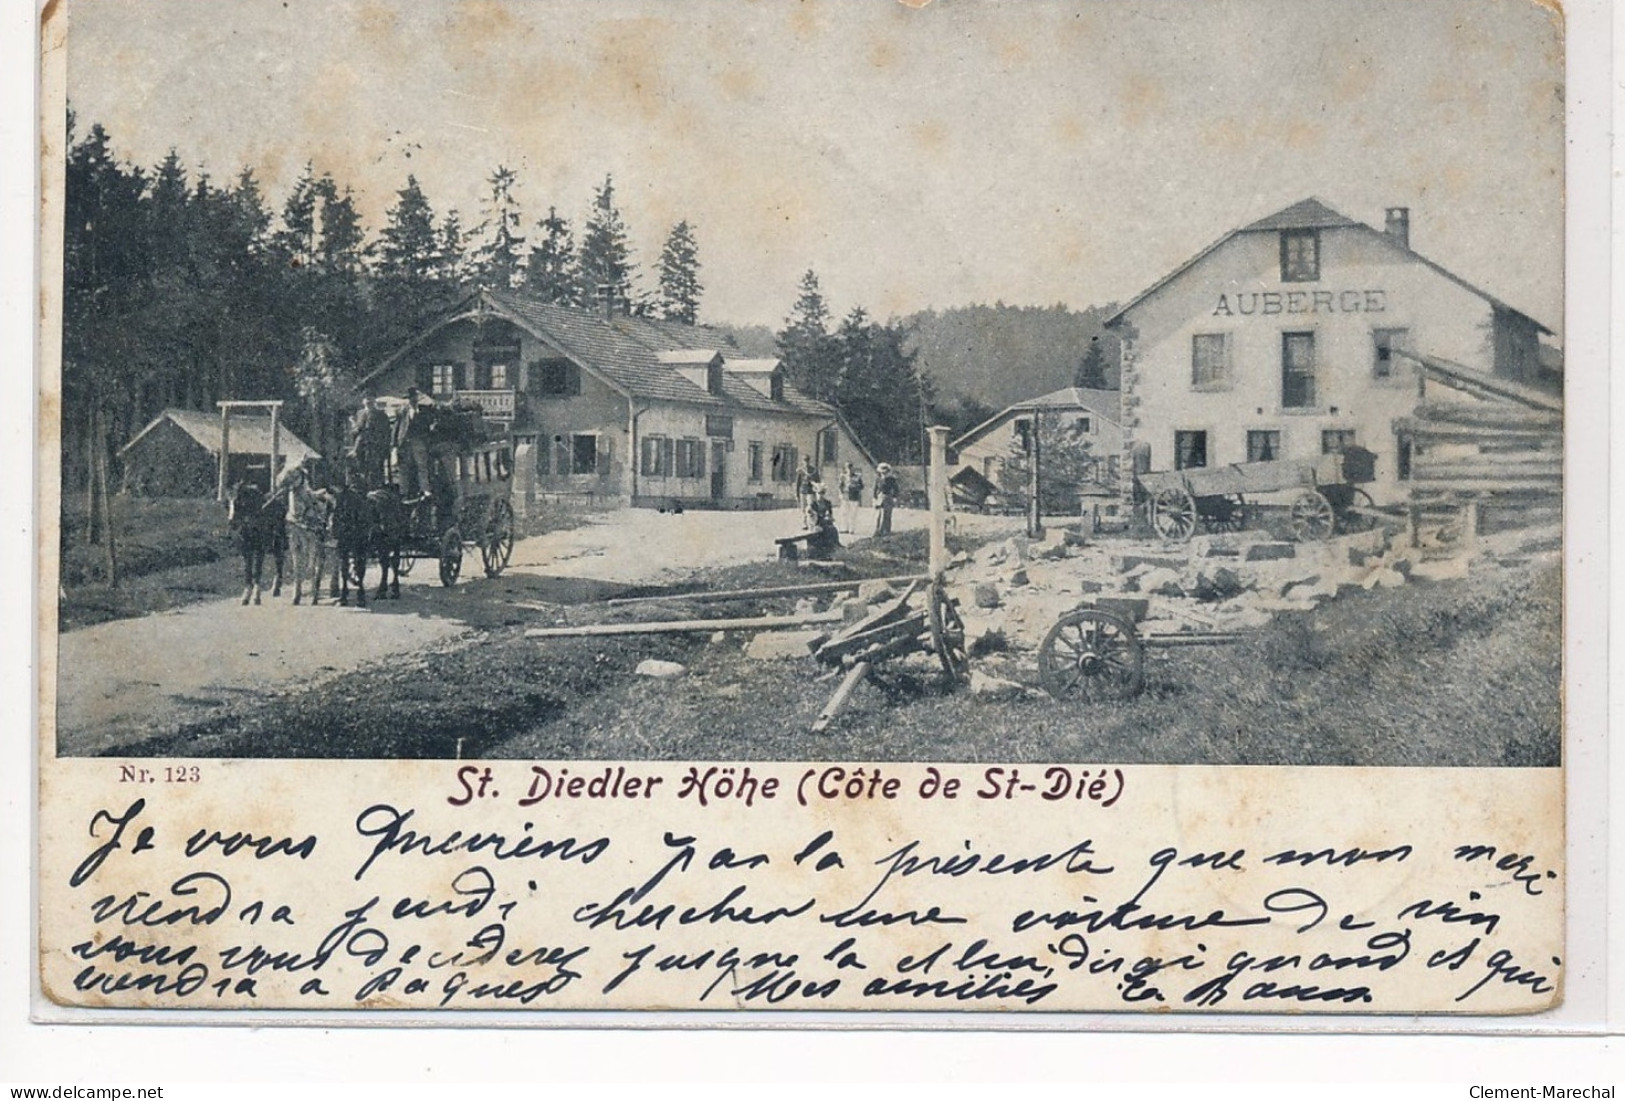 AUBERGE
Nr. 123
St. Diedler Höhe (Côte de St-Dié)
Je vous previens par la présente que mon mari
viendra jeudi chercher une voiture de vin
vous vous deciderez jusque la et lui direz quand et qui
viendra a Paques Mes amitiés
delcampe.net
Clement-Marechal